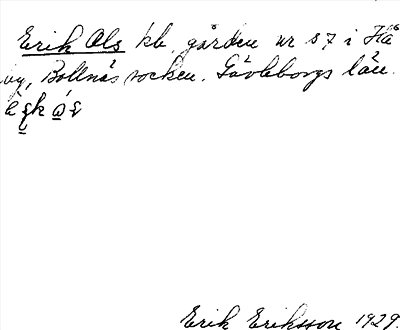 Erik Ols kb. gården nr 87 i Hä
by, Bollnäs socken. Gävleborgs län.
Erik Eriksson 1929.